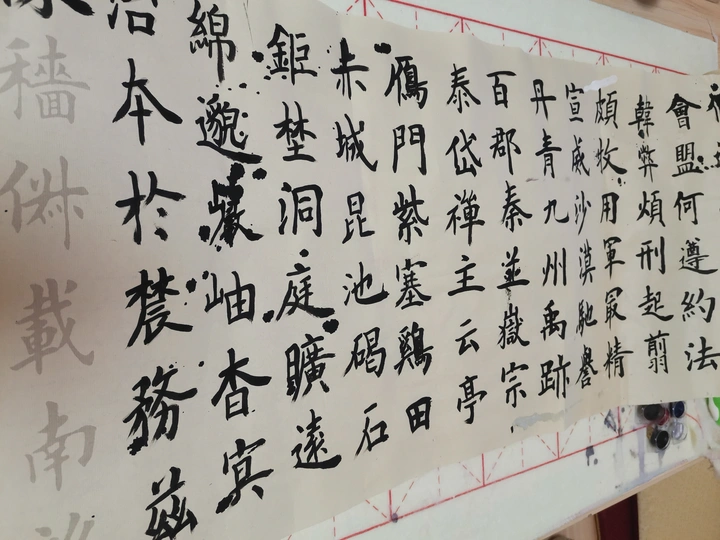 會盟何遵約法
韓弊煩刑起翦
頗牧用軍冣精
宣威沙漠馳譽
丹青九州禹跡
百郡秦並嶽宗
泰岱禪主云亭
鴈門紫塞鷄田
赤城昆池碣石
鉅埜洞庭曠遠
綿邈巖岫杳冥
治本於農務茲
穡俶載南